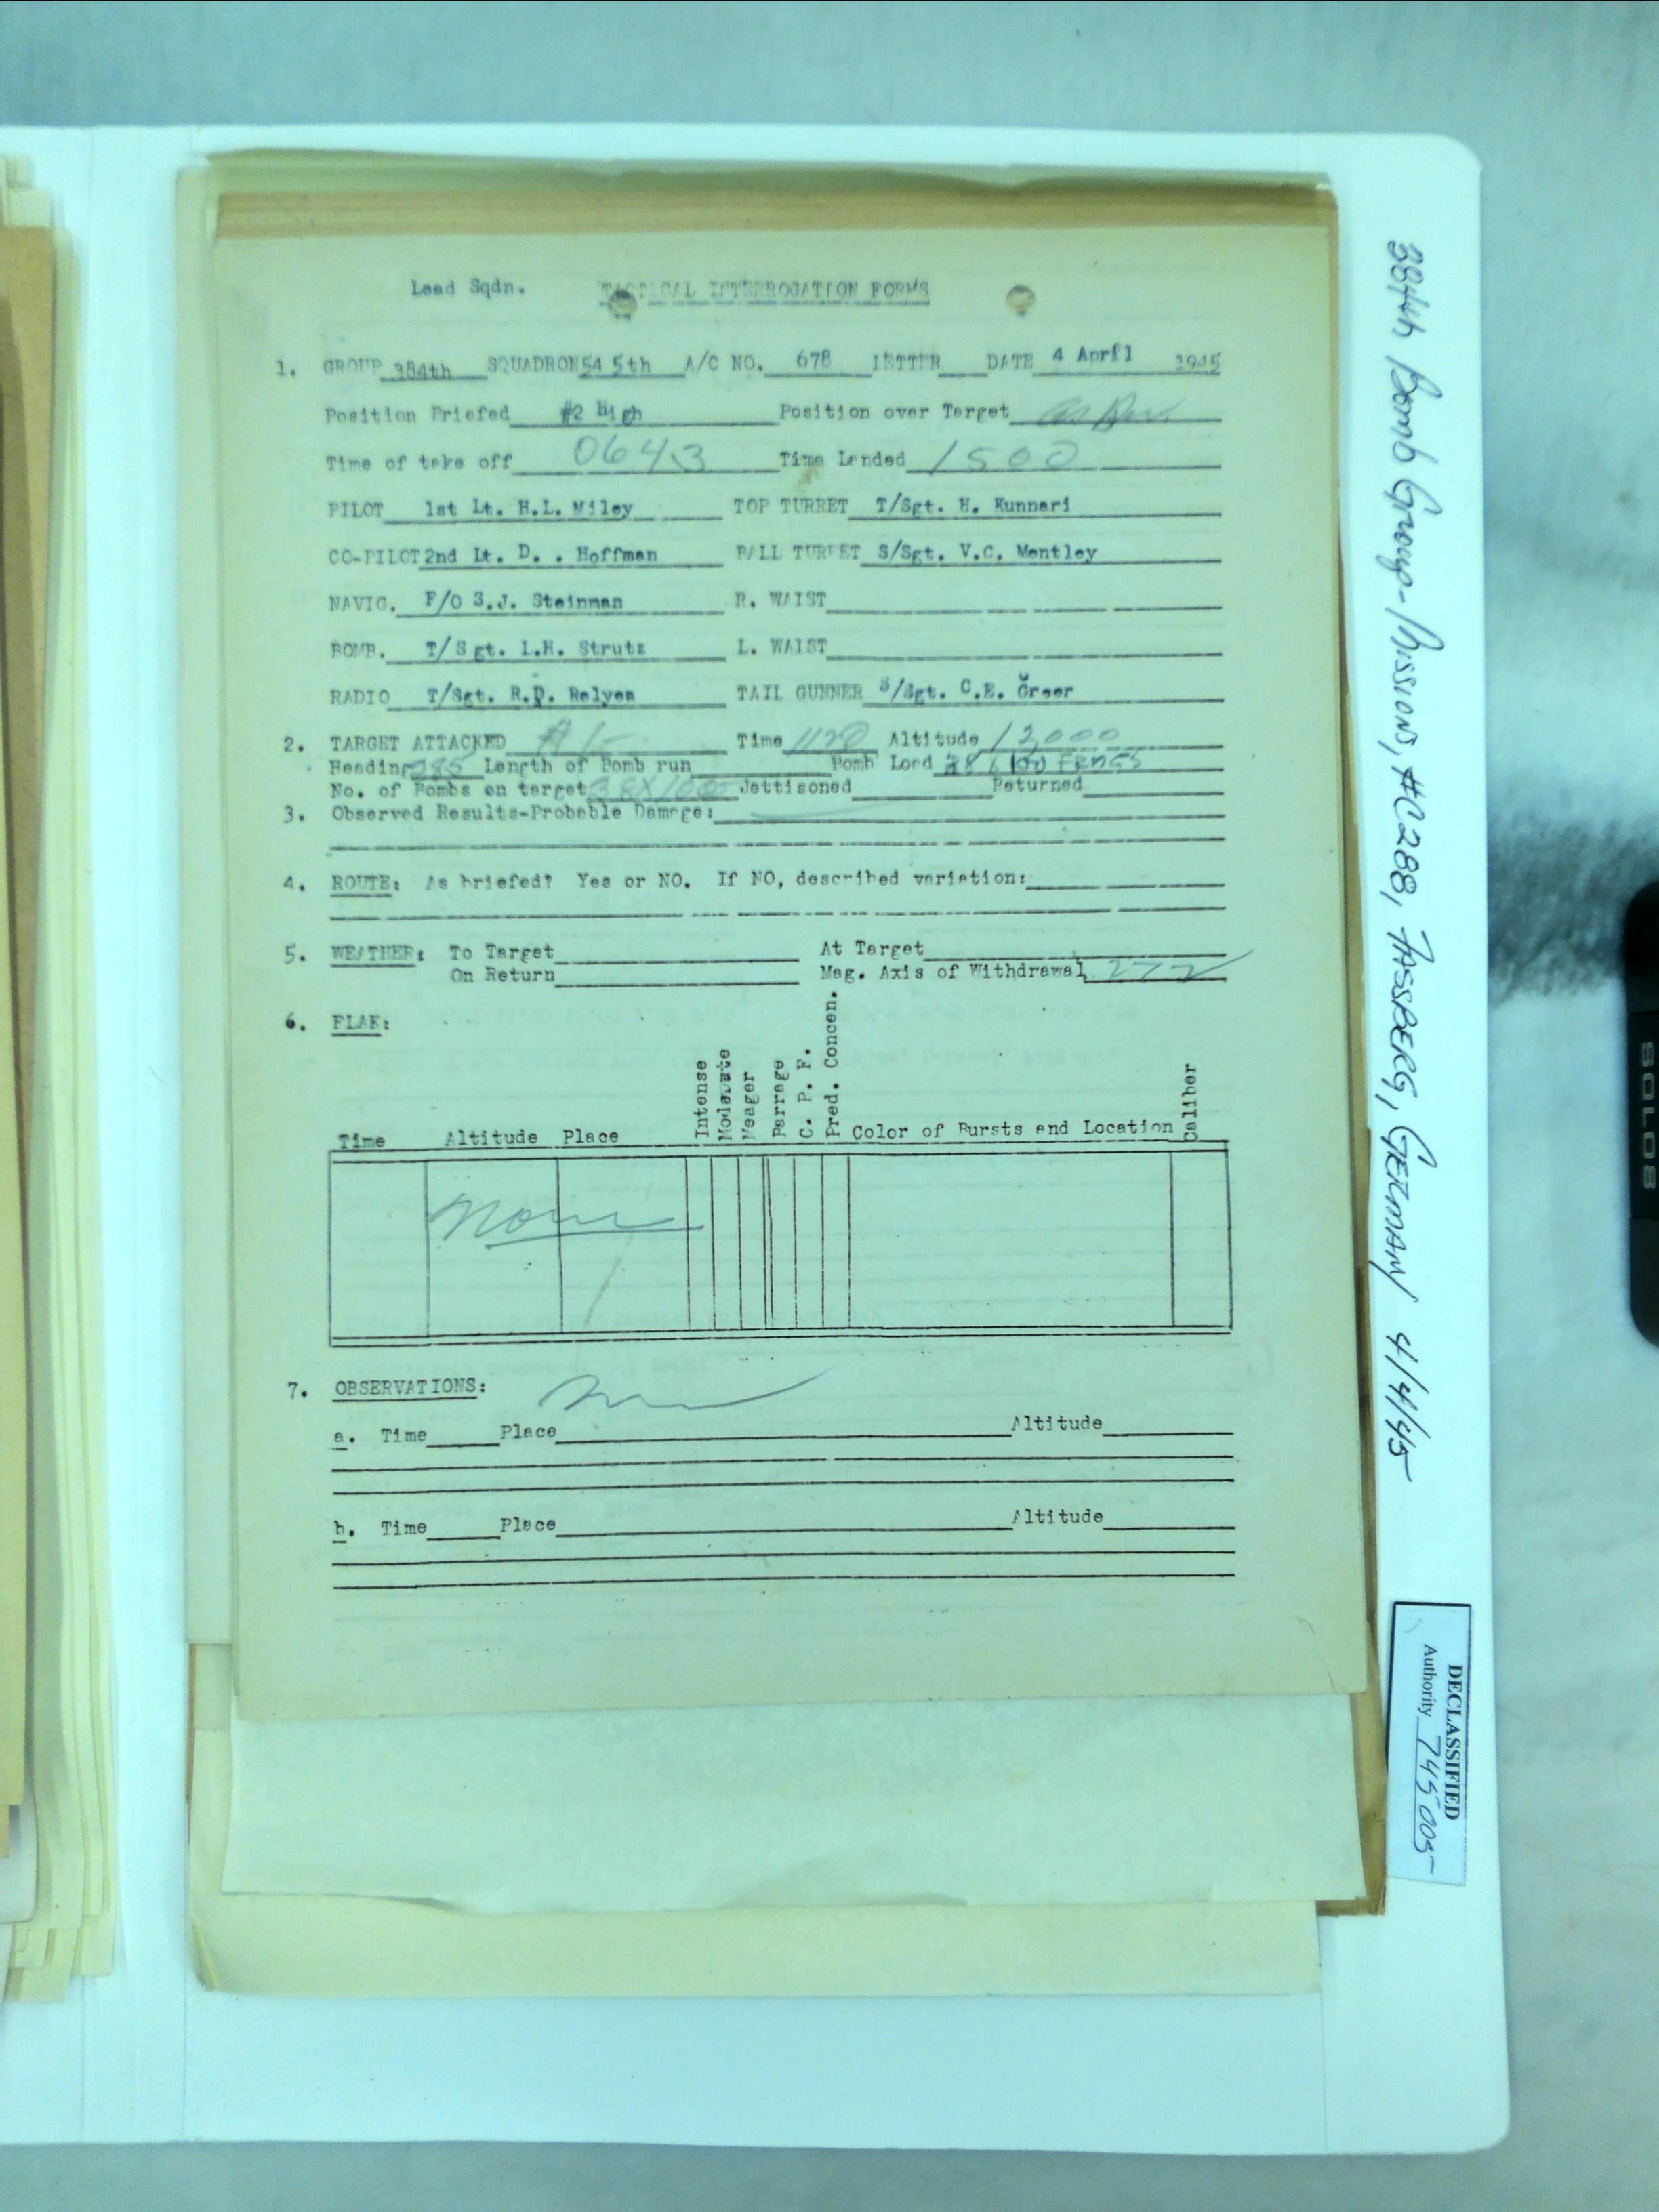 Lead Sqdn. TACTICAL INTERROGATION FORMS
1. GROUP 384th SQUADRON 545th A/C NO. 678 LETTER DATE 4 April 1945
Position Briefed #2 High Position over Target
Time of take off 0643 Time Landed 1500
PILOT 1st Lt. H.L. Miley TOP TURRET T/Sgt. H. Kunnari
CO-PILOT 2nd Lt. D. . Hoffman BALL TURRET S/Sgt. V.C. Mentley
NAVIG. F/O S.J. Steinman R. WAIST
BOMB. T/Sgt. L.H. Strutz L. WAIST
RADIO T/Sgt. R.D. Relyea TAIL GUNNER S/Sgt. C.E. Greer
2. TARGET ATTACKED Time 1120 Altitude 12,000
Heading 285 Length of Bomb run Bomb Load 38 X 100
No. of Bombs on target 38X100 Jettisoned Returned
3. Observed Results-Probable Damage:
4. ROUTE: As briefed? Yes or NO. If NO, described variation:
5. WEATHER: To Target At Target
On Return Mag. Axis of Withdrawal 272
6. FLAK:
Time Altitude Place Intense Moderate Meager Barrage C. P. F. Pred. Concen. Color of Bursts and Location Caliber
None
7. OBSERVATIONS:
a. Time Place Altitude
b. Time Place Altitude
384th Bomb Group-Missions, #C288, FASSBERG, GERMANY 4/4/45
DECLASSIFIED
Authority 745005
SOLO8